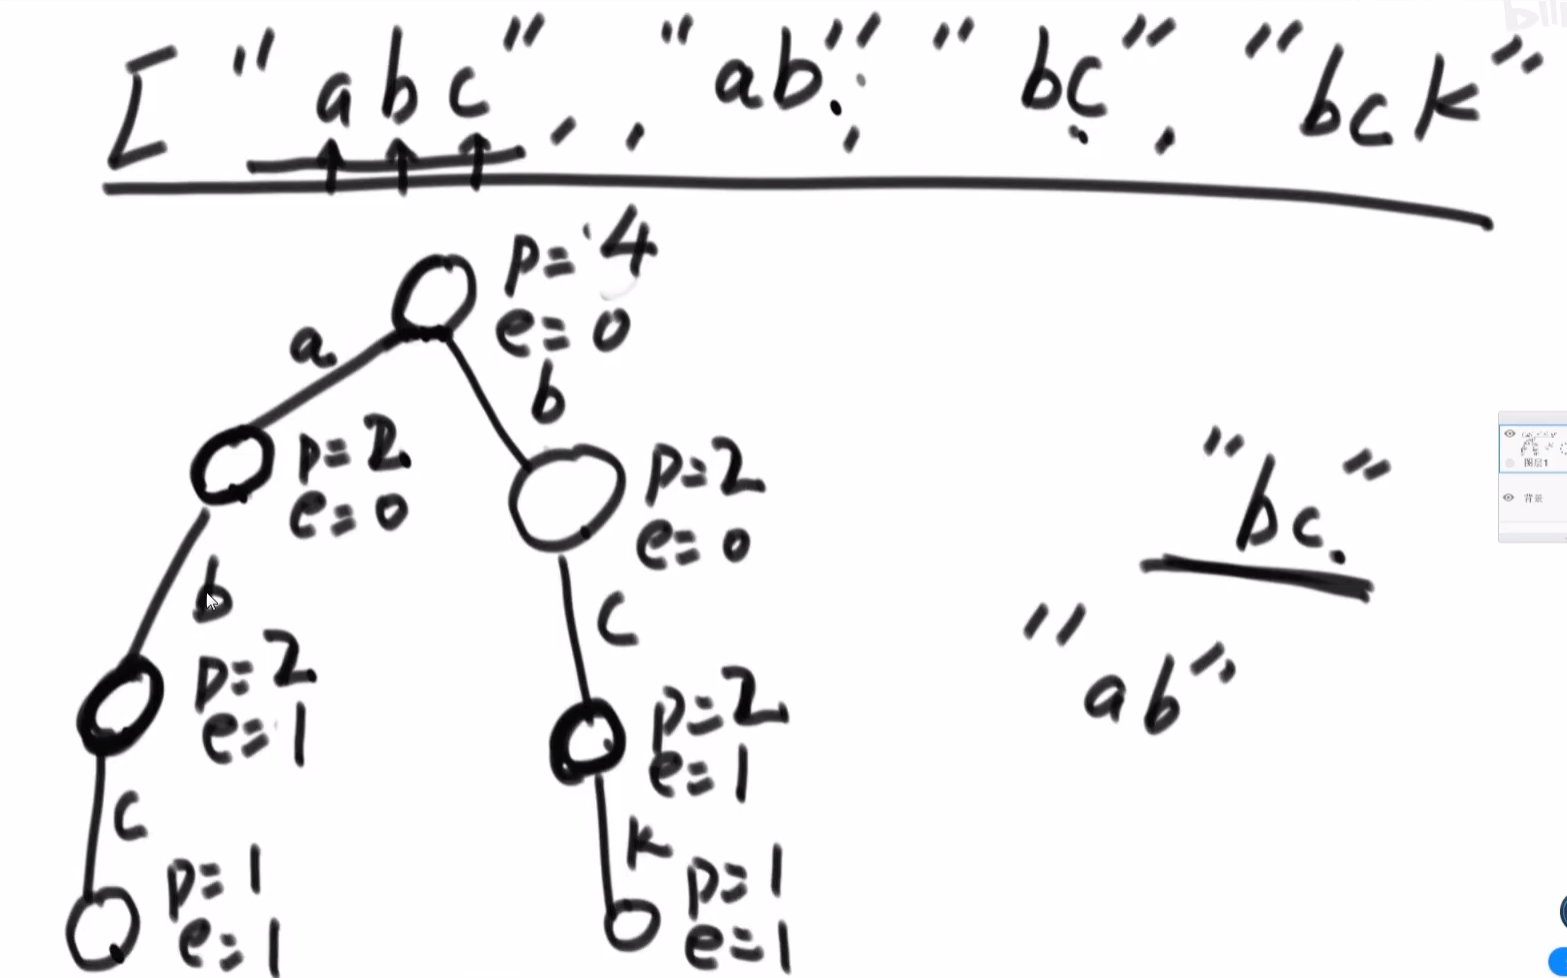 ["abc", , "ab", "bc", "bck"
p=4
e=0
a
b
p=2
e=0
p=2
e=0
"bc"
b
c
"ab"
p=2
e=1
p=2
e=1
c
k
p=1
e=1
p=1
e=1
图层1
背景